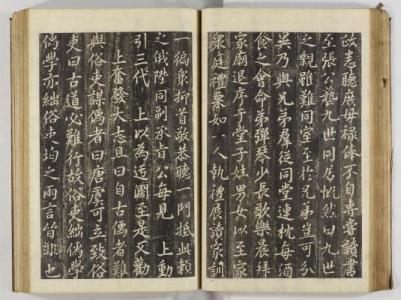 政悉聽庶母祿俸不自專嘗讀書
至張公藝九世同居慨然曰九世
之親雖難同室至於兄弟豈可分
異乃與兄弟羣從同堂連枕每酒
食之會命弟彈琴少長歌與晨拜
家廟退序于堂子姓男女以至家
衆庭禮肅如一人執禮展讀家訓
一編衆抑首敬恭聽一門抵此賴
之俄陞同副承旨公每見上動
引三代上以為迂闊至是又勸
上奮發大志且曰自古儒者難
與俗吏謀儒者曰唐虞可立致俗
吏曰古道必難行故俗吏絀儒學
儒學亦絀俗吏均之兩言皆非也